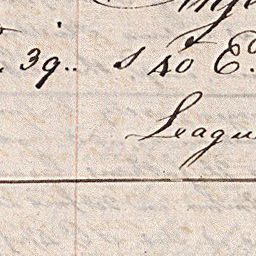 39.. S 40 E.
Leagu